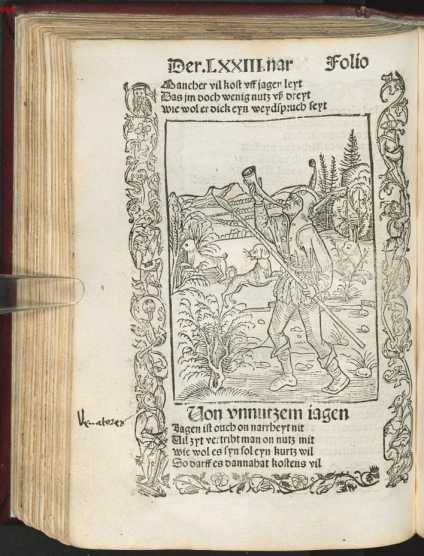 Der.LXXIII.nar Folio
Mancher vil kost vff jagen leyt
Das im doch wenig nutz vß dreyt
Wie wol er dick eyn weydspruch seyt
Von vnnutzem iagen
Jagen ist ouch on narrheyt nit
Vil zyt vertribt man on nutz mit
Wie wol es syn sol eyn kurtz wil
So darff es dannahat kostens vil